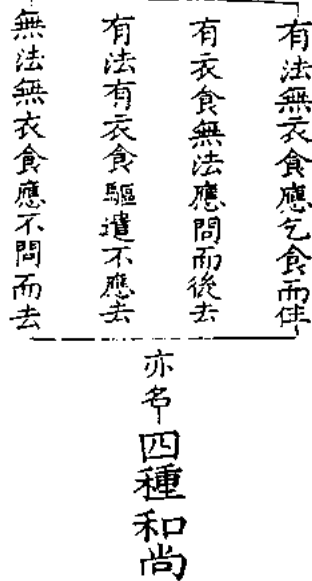 有法無衣食應乞食而住
有衣食無法應問而後去
有法有衣食驅遣不應去
無法無衣食應不問而去
亦名
四種和尚